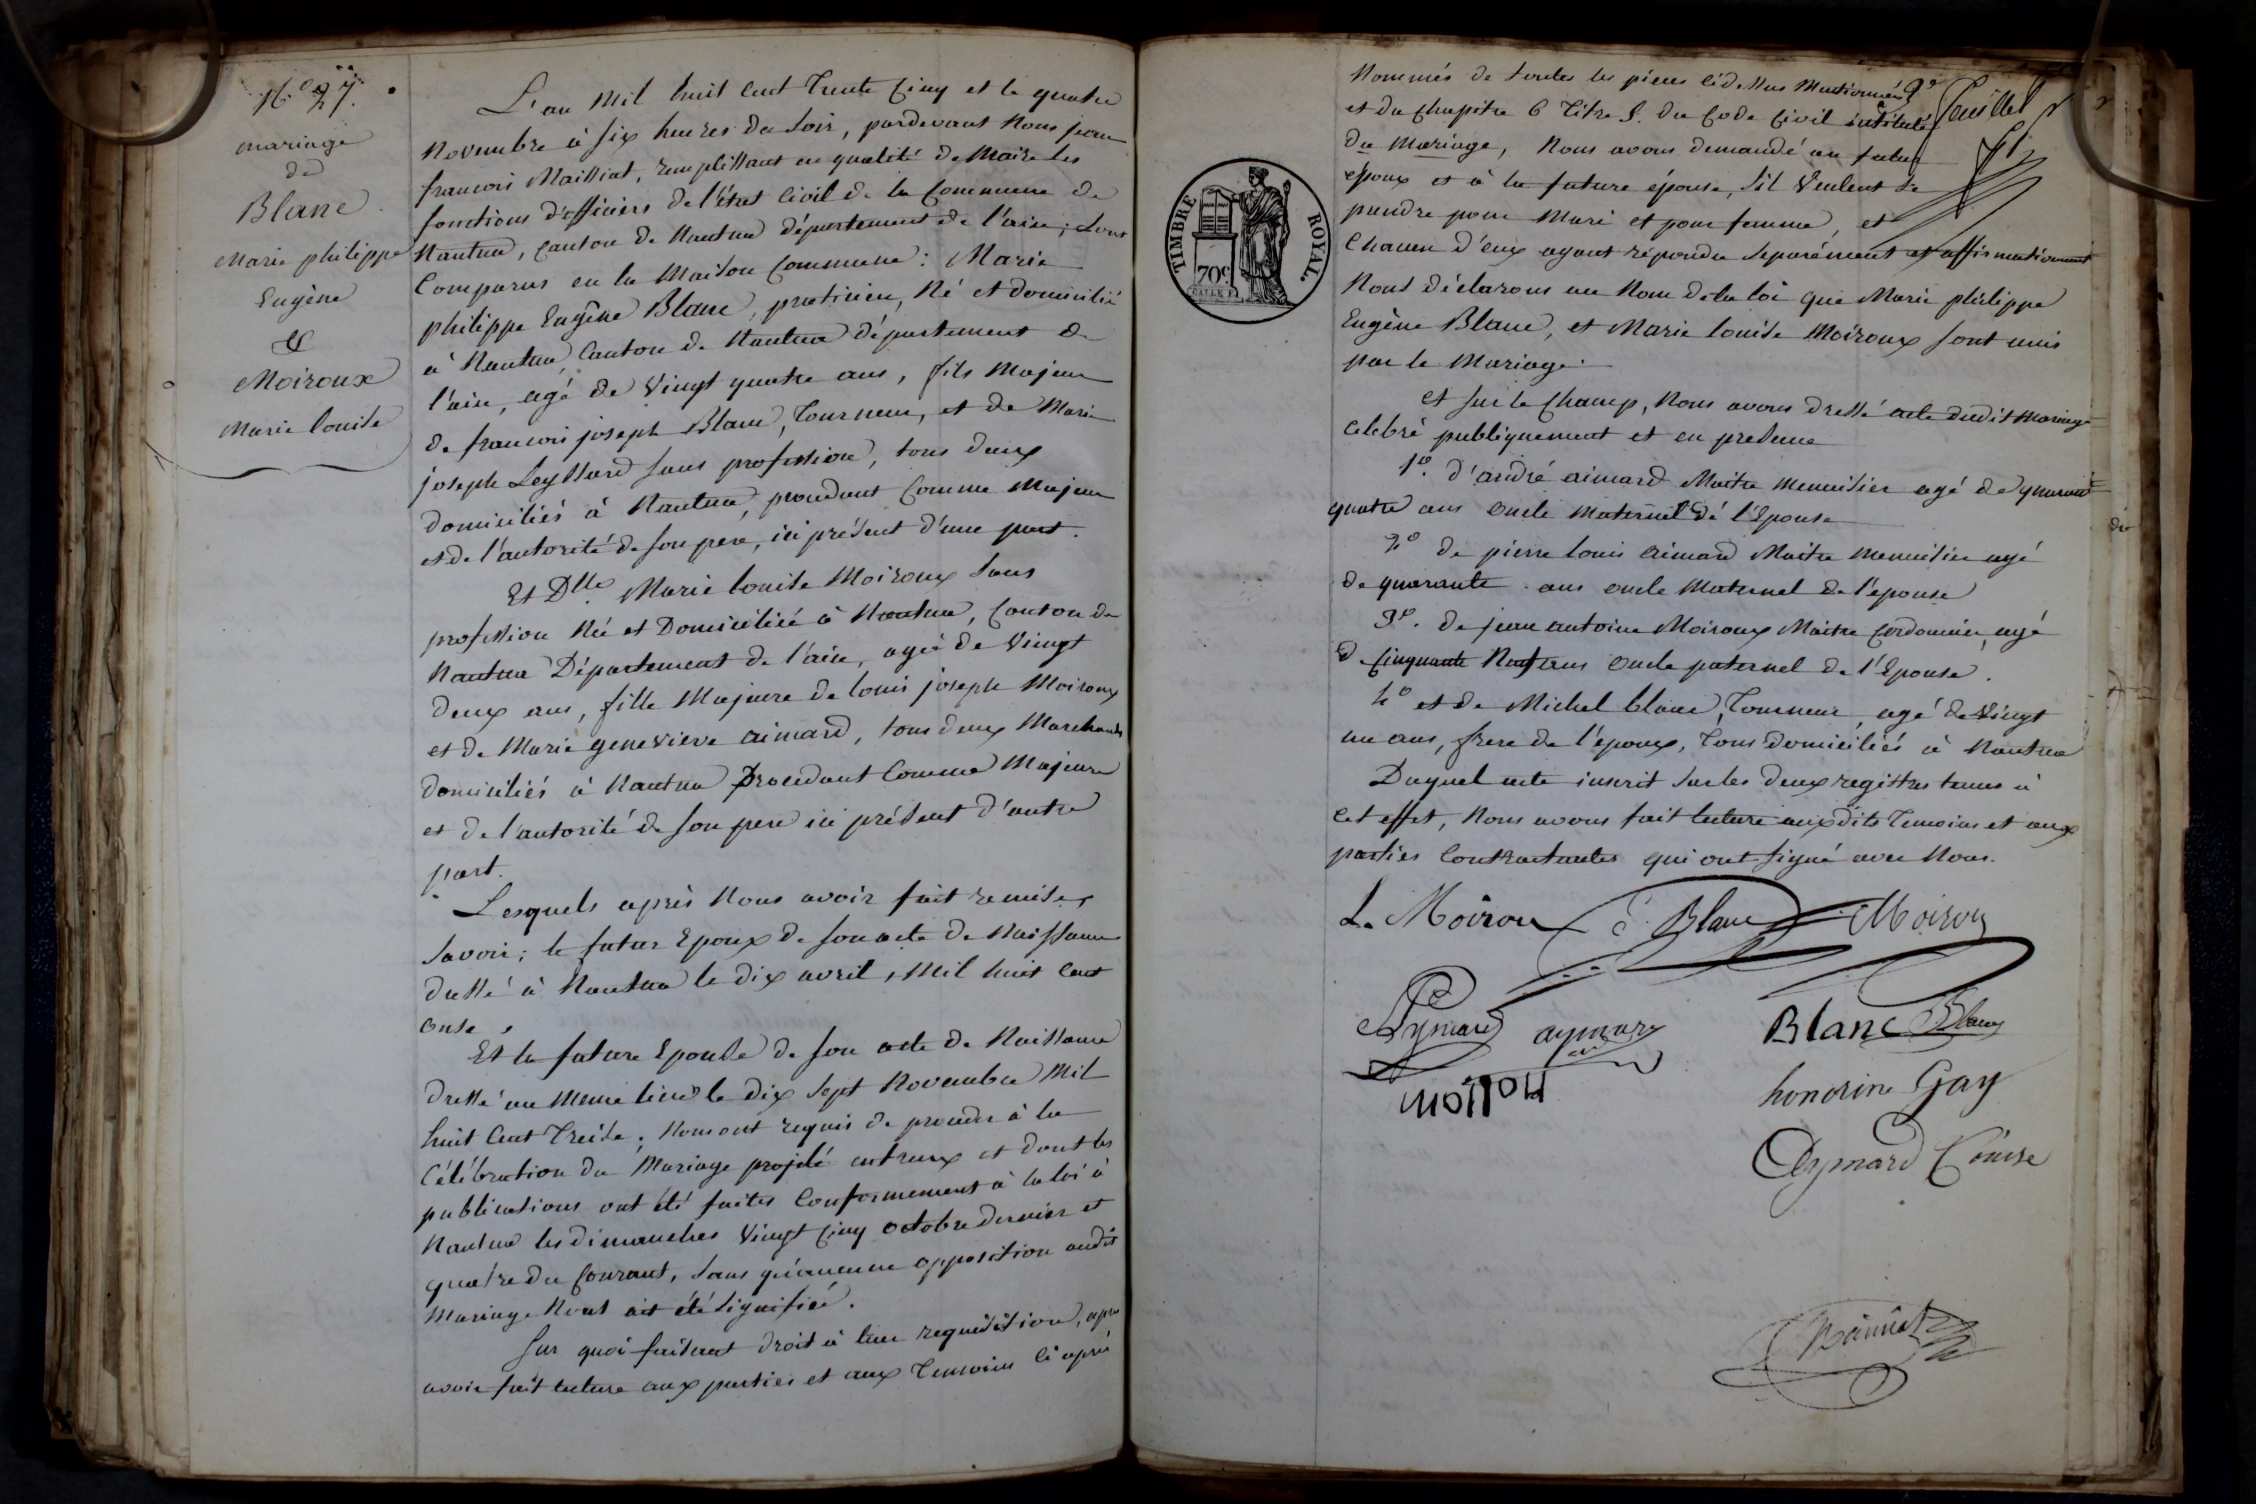 N.° 27.
mariage
de
Blanc
Marie philippe
Eugène
&
Moiroux
Marie louise
L'an Mil huit cent Trente Cinq et le quatre
Novembre à six heures du soir, pardevant Nous jean
francois Maissiat, remplissant en qualité de Maire les
fonctions d'officiers de l'état Civil de la Commune de
Nantua, Canton de Nantua département de l'ain; sont
Comparus en la Maison Commune: Marie
philippe Eugène Blanc, praticien, Né et domicilié
à Nantua, Canton de Nantua département de
l'ain, agé de Vingt quatre ans, fils Majeur
de francois joseph Blanc, Tourneur, et de Marie
joseph Leyssard sans profession, tous deux
domiciliés à Nantua, procédant Comme Majeur
et de l'autorité de son pere, ici présent d'une part.
Et Dlle Marie louise Moiroux sans
profession Née et Domiciliée à Nantua, Canton de
Nantua Département de l'ain, agée de Vingt
deux ans, fille Majeure de louis joseph Moiroux
et de Marie genevieve aimard, tous deux Marchands
domiciliés à Nantua Procédant Comme Majeure
et de l'autorité de son pere ici présent d'autre
part.
Lesquels après Nous avoir fait remise,
Savoir; le futur Epoux de son acte de Naissance
dressé à Nantua le dix avril, Mil huit Cent
onse,
Et la future Epouse de son acte de Naissance
dressé au meme lieu le dix sept Novembre Mil
huit Cent Treise; Nous ont requis de proceder à la
Célébration du Mariage projeté entreux et dont les
publications ont été faites Conformement à la loi à
Nantua les dimanches Vingt Cinq octobre dernier et
quatre du Courant, sans qu'aucune opposition audit
Mariage Nous ait été signifiée.
Sur quoi faisant droit à leur requisition, après
avoir fait lecture aux parties et aux Temoins ci après
Nommés de toutes les pièces cidessus Mentionnées
et du Chapitre 6 Titre 5. du Code Civil intitulé
du Mariage, Nous avons demandé au futur
époux et à la future épouse, s'il Veulent se
prendre pour Mari et pour femme, et
Chacun d'eux ayant répondu séparément et affirmativement
Nous déclarons au Nom de la loi que Marie philippe
Eugène Blanc, et Marie louise Moiroux sont unis
par le Mariage.
et sur le Champ, Nous avons dressé acte dudit Mariage
celebré publiquement et en presence
1°. d'andré aimard Maitre menuisier agé de quarante
quatre ans oncle Maternel de l'Epouse
2° de pierre louis aimard Maitre menuisier agé
de quarante ans oncle Maternel de l'épouse
3°. de jean antoine Moiroux Maitre Cordonnier, agé
de Cinquante Neuf ans oncle paternel de l'Epouse.
4° et de Michel blanc, Tourneur, agé de Vingt
un ans, frere de l'époux, Tous domiciliés à Nantua
Duquel acte inscrit sur les deux registres tenus à
cet effet, Nous avons fait lecture auxdits Temoins et aux
parties Contractantes qui ont signé avec Nous.
2e feuillet
TIMBRE ROYAL
70c.
L. Moiroux E. Blanc Moiroux
Aymard aymard Blanc Blanc
honorine Gay
Aymard Louise